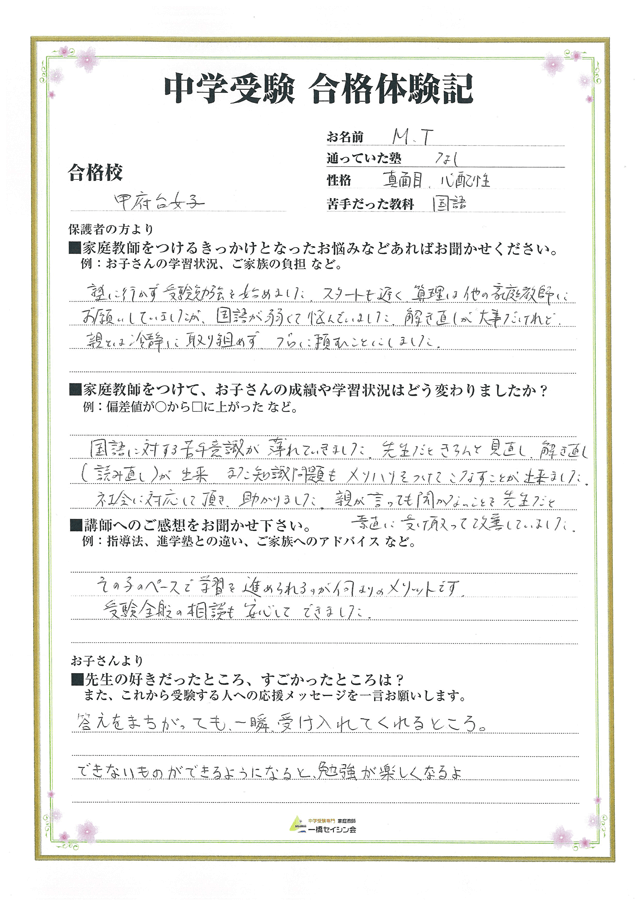 中学受験 合格体験記
お名前 M.T
通っていた塾 なし
合格校
性格 真面目、心配性
甲府台女子
苦手だった教科 国語
保護者の方より
■家庭教師をつけるきっかけとなったお悩みなどあればお聞かせください。
例：お子さんの学習状況、ご家族の負担 など。
塾に行かず受験勉強を始めました。スタートも遅く 算理は他の家庭教師に
お願いしていましたが、国語が弱くて悩んでいました。解き直しが大事だけれど、
親とは冷静に取り組めず プロに頼むことにしました。
■家庭教師をつけて、お子さんの成績や学習状況はどう変わりましたか？
例：偏差値が○から□に上がった など。
国語に対する苦手意識が薄れていきました。先生だときちんと見直し、解き直し
(読み直し)が出来 また知識問題も メリハリをつけてこなすことが出来ました。
社会に対応して頂き、助かりました。親が言っても聞かないことを先生だと
素直に受け取って改善していました。
■講師へのご感想をお聞かせ下さい。
例：指導法、進学塾との違い、ご家族へのアドバイス など。
その子のペースで学習を進められるのが何よりのメリットです。
受験全般の相談も安心してできました。
お子さんより
■先生の好きだったところ、すごかったところは？
また、これから受験する人への応援メッセージを一言お願いします。
答えをまちがっても、一瞬、受け入れてくれるところ。
できないものができるようになると、勉強が楽しくなるよ
中学受験専門 家庭教師
一橋セイシン会